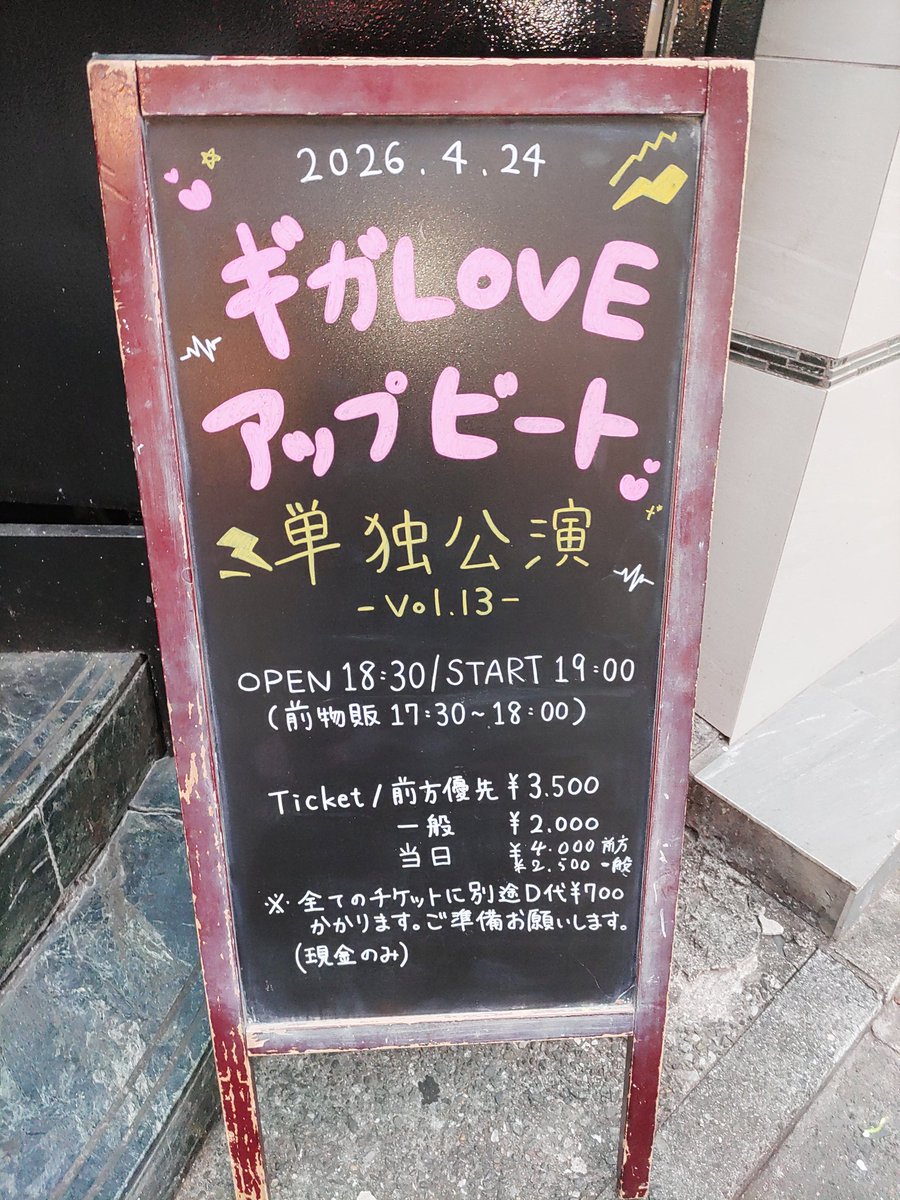 2026.4.24
ギガLOVE
アップビート
単独公演
-Vol.13-
OPEN 18:30/START 19:00
(前物販 17:30~18:00)
Ticket/前方優先 ¥3.500
一般 ¥2.000
当日 ¥4.000 前方
¥2.500 一般
※全てのチケットに別途D代¥700
かかります。ご準備お願いします。
(現金のみ)